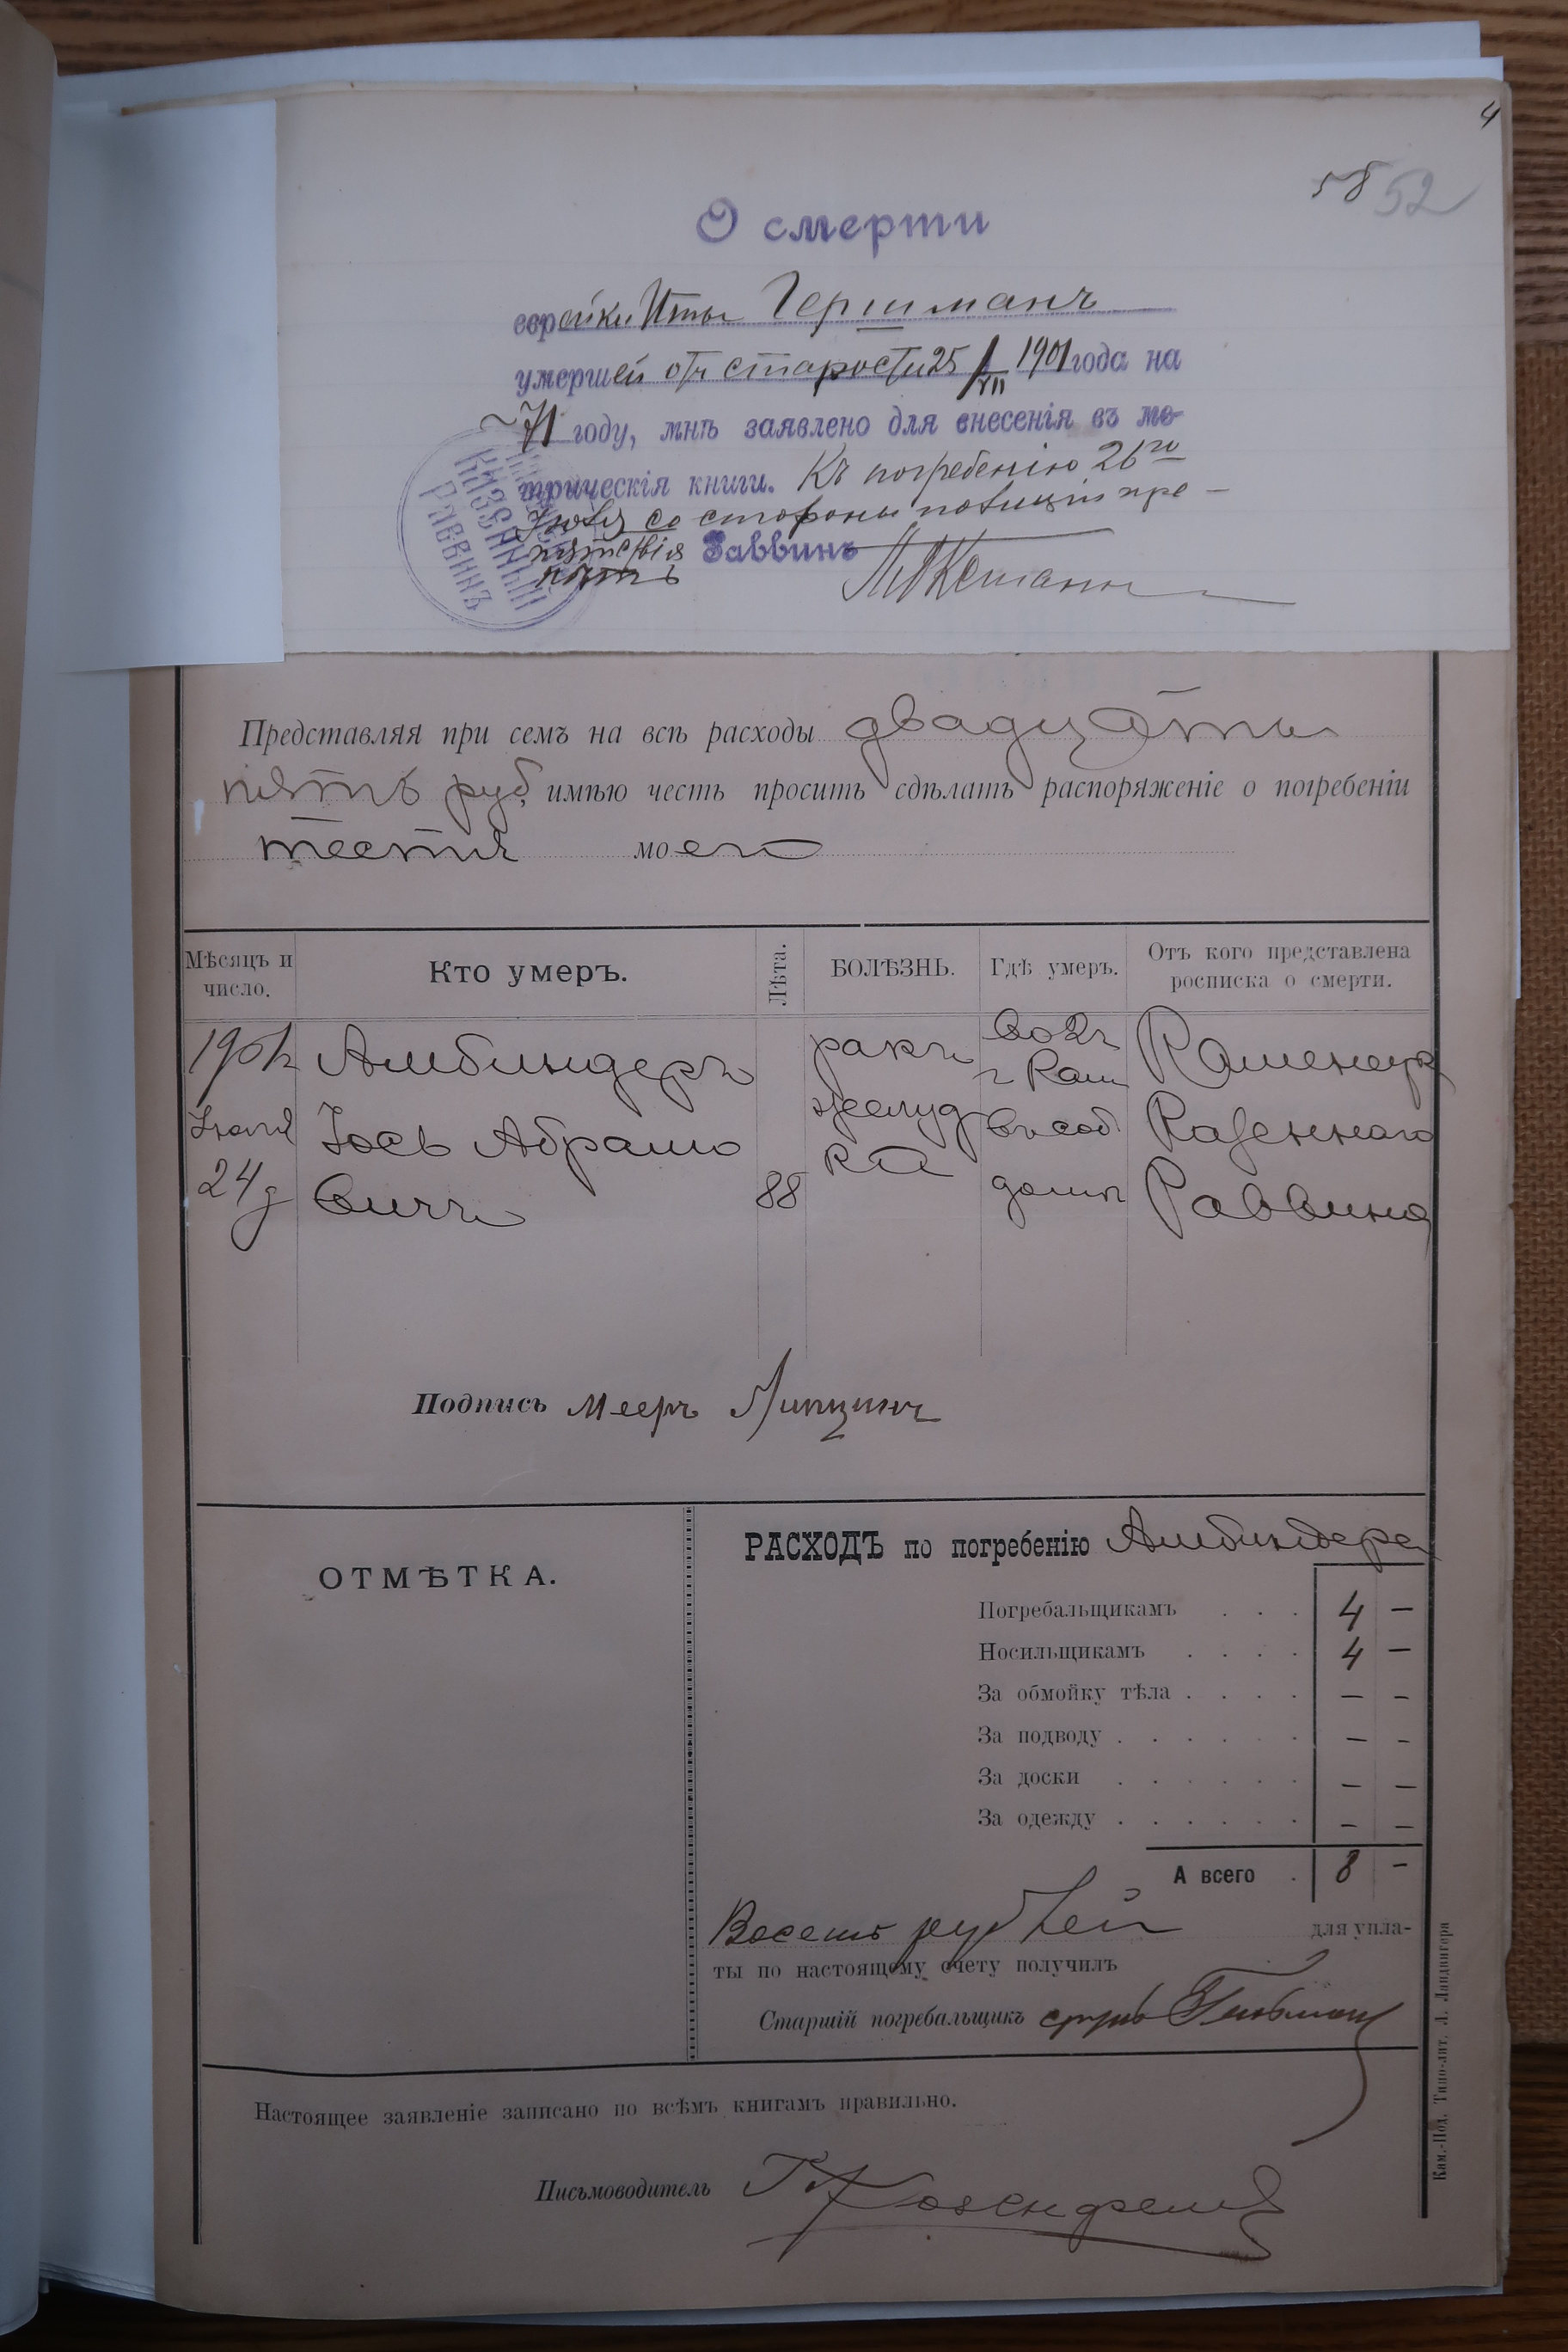 4
58 52
О смерти
еврейки Иты Гершманъ
умершей отъ старости 25/VII 1901 года на
71 году, мнѣ заявлено для внесенія въ ме-
трическія книги. Къ погребенію 26го
Іюля со стороны полиціи пре-
пятствія
нѣтъ Раввинъ
КАЗЕННЫЙ
РАВВИНЪ
Представляя при семъ на всѣ расходы двадцать
пять руб. имѣю честь просить сдѣлать распоряженіе о погребеніи
тестя моего
Мѣсяцъ и число. Кто умеръ. Лѣта. БОЛѢЗНЬ. Гдѣ умеръ. Отъ кого представлена росписка о смерти.
1901 Альбиндеръ ракъ г Кам Каменецк
Іюля Іось Абрамо желуд въ соб Казеннаго
24 вичъ 88 ка домѣ Раввина
Подпись Мееръ Липцинъ
ОТМѢТКА.
РАСХОДЪ по погребенію Альбиндера
Погребальщикамъ . . . 4 —
Носильщикамъ . . . . 4 —
За обмойку тѣла . . . . — –
За подводу . . . . . . — –
За доски . . . . . . — —
За одежду . . . . . . – —
А всего . 8 –
Восемь рублей для упла-
ты по настоящему счету получилъ
Старшій погребальщикъ
Настоящее заявленіе записано по всѣмъ книгамъ правильно.
Письмоводитель Розенфельд
Кам.-Под. Типо-лит. Л. Ландвигера